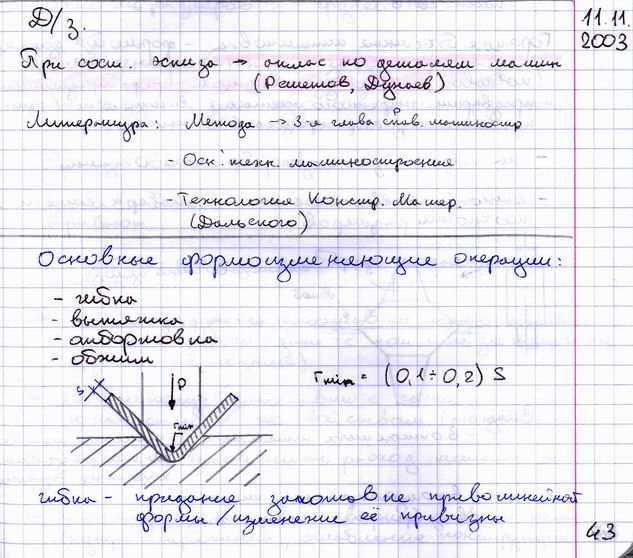 Д/з.
11.11.
2003
При сост. эскиза → атлас по деталям машин
(Решетов, Дунаев)
Литература: Метода → 3-я глава спр. машиностр
- Осн. техн. машиностроения
- Технология Констр. Матер.
(Дальского)
Основные формоизменяющие операции:
- гибка
- вытяжка
- отбортовка
- обжим
S
P
rmin
rmin = (0,1÷0,2) S
гибка - придание заготовке криволинейной
формы/изменение её кривизны
43